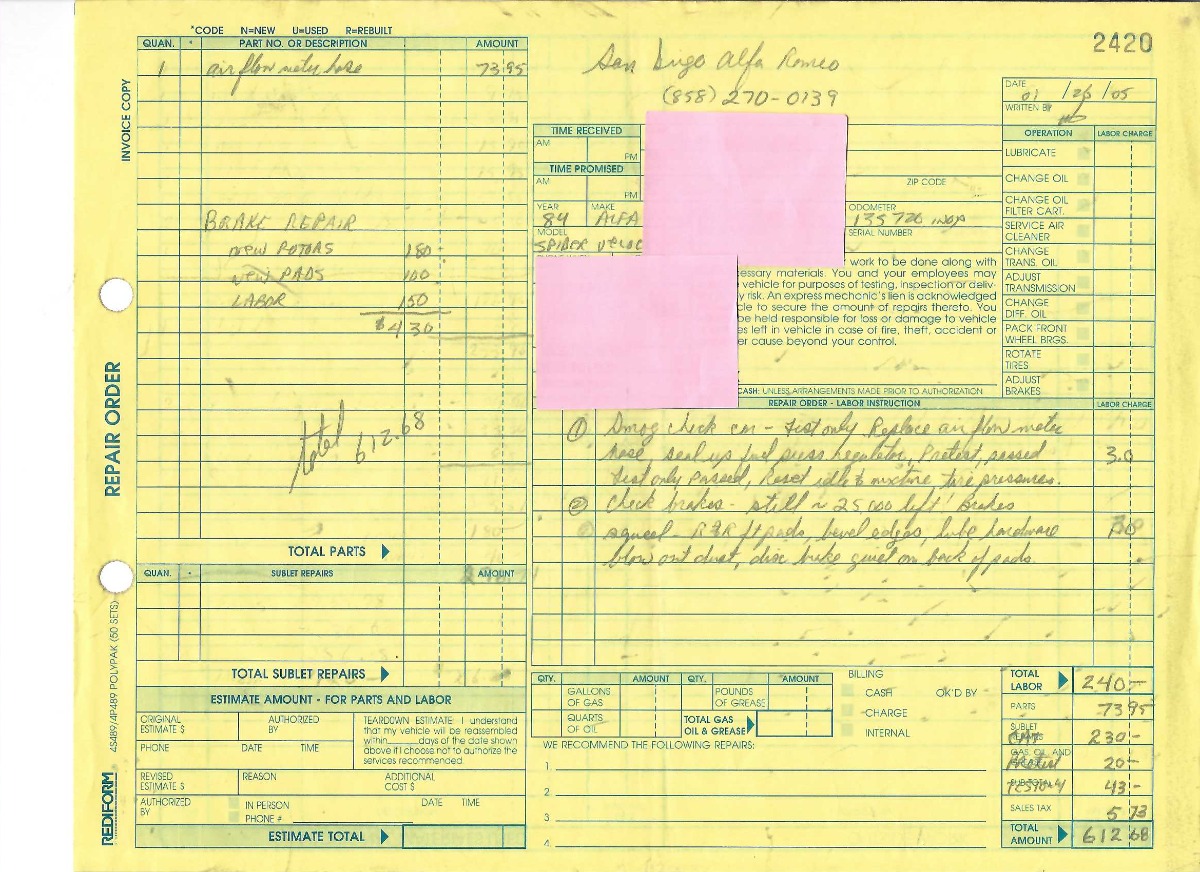 *CODE N=NEW U=USED R=REBUILT
QUAN. * PART NO. OR DESCRIPTION AMOUNT
1 air flow meter hose 73.95
BRAKE REPAIR
new ROTORS 180-
new PADS 100
LABOR 150
$430
total 612.68
TOTAL PARTS
QUAN. * SUBLET REPAIRS AMOUNT
TOTAL SUBLET REPAIRS
ESTIMATE AMOUNT - FOR PARTS AND LABOR
ORIGINAL ESTIMATE $ AUTHORIZED BY
PHONE DATE TIME
TEARDOWN ESTIMATE: I understand
that my vehicle will be reassembled
within____days of the date shown
above if I choose not to authorize the
services recommended.
REVISED ESTIMATE $ REASON ADDITIONAL COST $
AUTHORIZED BY IN PERSON DATE TIME
PHONE #
ESTIMATE TOTAL
INVOICE COPY
REPAIR ORDER
4S489/4P489 POLYPAK (50 SETS)
REDIFORM
San Diego Alfa Romeo
(858) 270-0139
2420
DATE 01/26/05
WRITTEN BY
TIME RECEIVED
AM PM
TIME PROMISED
AM PM
ZIP CODE
YEAR MAKE ODOMETER
84 ALFA 135720
MODEL SERIAL NUMBER
SPIDER VELOC
work to be done along with
cessary materials. You and your employees may
vehicle for purposes of testing, inspection or deliv-
y risk. An express mechanic's lien is acknowledged
cle to secure the amount of repairs thereto. You
be held responsible for loss or damage to vehicle
es left in vehicle in case of fire, theft, accident or
er cause beyond your control.
CASH: UNLESS ARRANGEMENTS MADE PRIOR TO AUTHORIZATION
OPERATION LABOR CHARGE
LUBRICATE
CHANGE OIL
CHANGE OIL FILTER CART.
SERVICE AIR CLEANER
CHANGE TRANS. OIL
ADJUST TRANSMISSION
CHANGE DIFF. OIL
PACK FRONT WHEEL BRGS.
ROTATE TIRES
ADJUST BRAKES
REPAIR ORDER - LABOR INSTRUCTION LABOR CHARGE
① Smog check car - test only Replace air flow meter
hose, seal up fuel press. regulator, Pretest, passed 3.0
Test only Passed, Reset idle & mixture, tire pressures.
② Check brakes - still ~ 25,000 left! Brakes
squeel - R&R ft pads, bevel edges, lube hardware
blow out dust, disc brake quiet on back of pads.
QTY. AMOUNT QTY. AMOUNT
GALLONS OF GAS POUNDS OF GREASE
QUARTS OF OIL TOTAL GAS OIL & GREASE
BILLING
CASH OK'D BY
CHARGE
INTERNAL
WE RECOMMEND THE FOLLOWING REPAIRS:
1.
2.
3.
4.
TOTAL LABOR 240-
PARTS 73 95
SUBLET 230-
GAS, OIL AND Pretest 20-
SUB-TOTAL 43-
SALES TAX 5 73
TOTAL AMOUNT 612 68